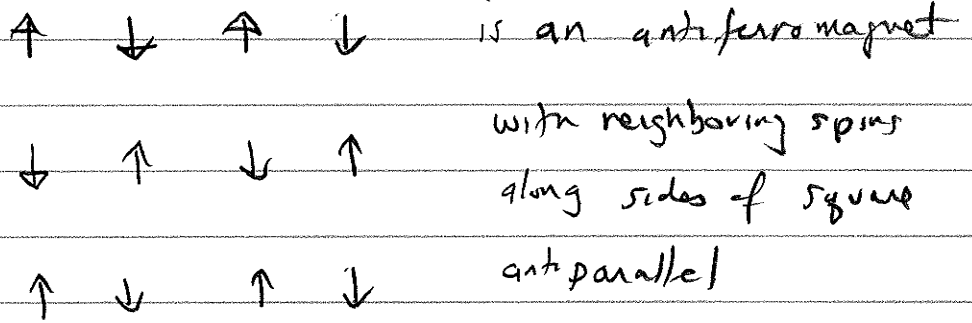 is an antiferromagnet
with neighboring spins
along sides of square
antiparallel